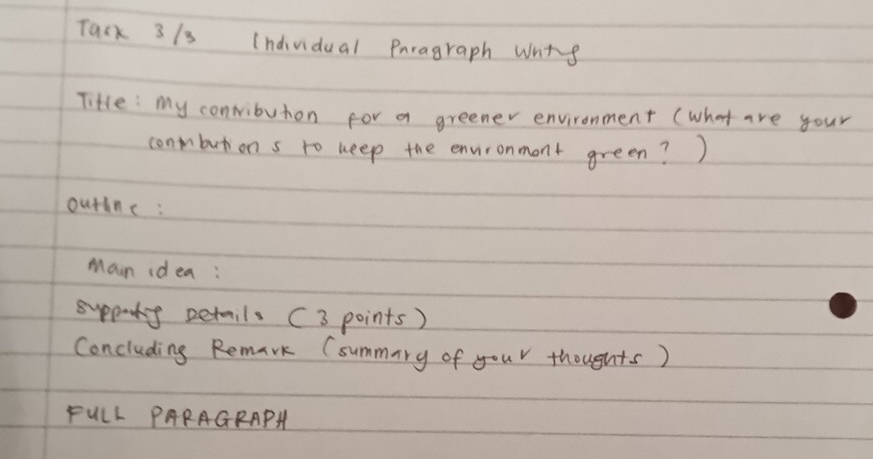 Task 3/3 Individual Paragraph Writing
Title: My contribution for a greener environment (what are your
contributions to keep the environment green?)
Outline:
Main idea:
Supporting Details (3 points)
Concluding Remark (summary of your thoughts)
FULL PARAGRAPH